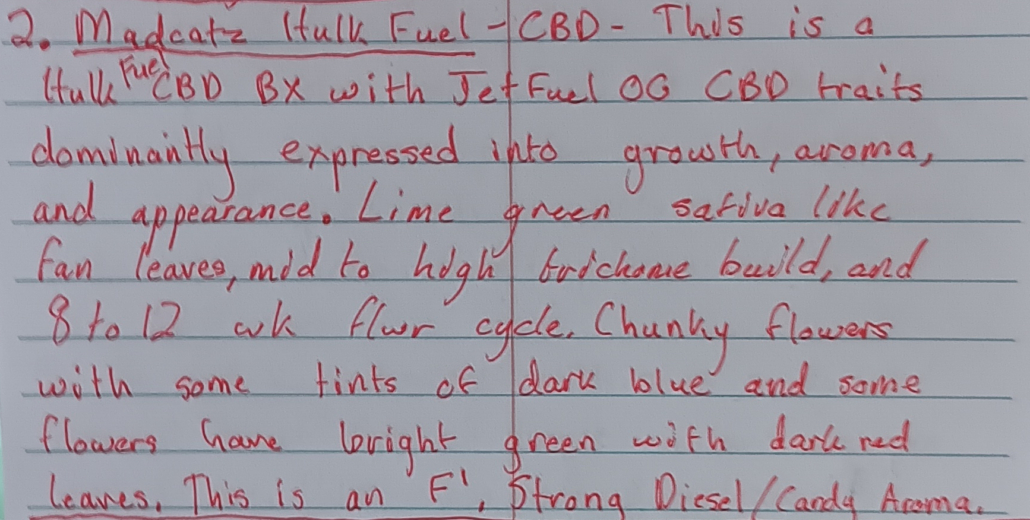 2. Madcatz Hulk Fuel - CBD - This is a
Hulk Fuel CBD BX with Jet Fuel OG CBD traits
dominantly expressed into growth, aroma,
and appearance. Lime green sativa like
fan leaves, mid to high trichome build, and
8 to 12 wk flwr cycle. Chunky flowers
with some tints of dark blue and some
flowers have bright green with dark red
leaves. This is an F1. Strong Diesel/Candy Aroma.